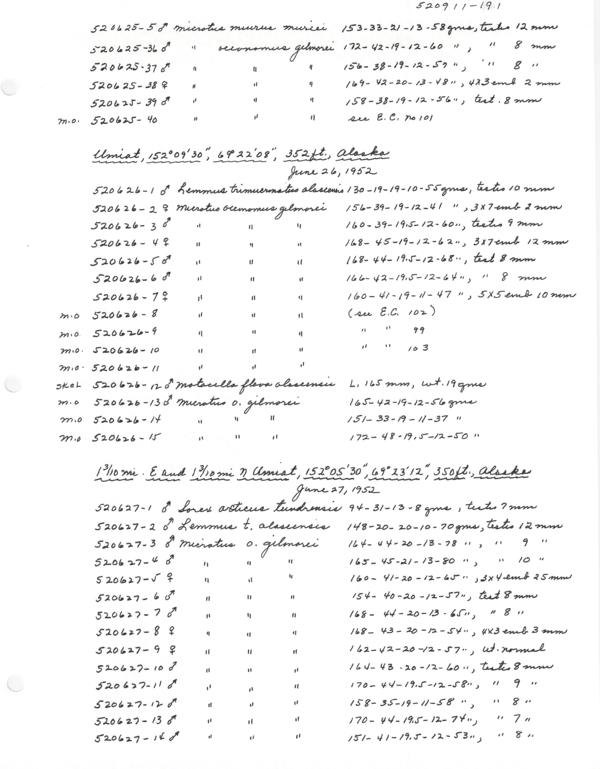 520911-191
520625-5 ♂ microtus miurus muriei 153-33-21-13-58 gms, testis 12 mm
520625-36 ♂ " oeconomus gilmorei 172-42-19-12-60 ", " 8 mm
520625-37 ♂ " " " 156-38-19-12-57 ", " 8 "
520625-38 ♀ " " " 169-42-20-13-48 ", 4x3 emb 2 mm
520625-39 ♂ " " " 158-38-19-12-56 ", test. 8 mm
m.o. 520625-40 " " " see E.C. no 101
Umiat, 152°09'30", 69°22'08", 352 ft., Alaska
June 26, 1952
520626-1 ♂ Lemmus trimucronatus alascensis 130-19-19-10-55 gms, testis 10 mm
520626-2 ♀ Microtus oeconomus gilmorei 156-39-19-12-41 ", 3x7 emb 2 mm
520626-3 ♂ " " " 160-39-19.5-12-60 ", testis 9 mm
520626-4 ♀ " " " 168-45-19-12-62 ", 3x7 emb 12 mm
520626-5 ♂ " " " 168-44-19.5-12-68 ", test 8 mm
520626-6 ♂ " " " 166-42-19.5-12-64 ", " 8 mm
520626-7 ♀ " " " 160-41-19-11-47 ", 5x5 emb 10 mm
m.o 520626-8 " " " (see E.C. 102)
m.o. 520626-9 " " " " " 99
m.o. 520626-10 " " " " " 103
m.o. 520626-11 " " "
SKEL 520626-12 ♂ motacilla flava alascensis L. 165 mm, wt. 19 gms
m.o 520626-13 ♂ microtus o. gilmorei 165-42-19-12-56 gms
m.o 520626-14 " " " 151-33-19-11-37 "
m.o 520626-15 " " " 172-48-19.5-12-50 "
1 3/10 mi. E and 1 3/10 mi N Umiat, 152°05'30", 69°23'12", 350 ft., Alaska
June 27, 1952
520627-1 ♂ Sorex arcticus tundrensis 94-31-13-8 gms, testis 7 mm
520627-2 ♂ Lemmus t. alascensis 148-20-20-10-70 gms, testis 12 mm
520627-3 ♂ Microtus o. gilmorei 164-44-20-13-78 ", " 9 "
520627-4 ♂ " " " 165-45-21-13-80 ", " 10 "
520627-5 ♀ " " " 160-41-20-12-65 ", 3x4 emb 25 mm
520627-6 ♂ " " " 154-40-20-12-57 ", test 8 mm
520627-7 ♂ " " " 168-44-20-13-65 ", " 8 "
520627-8 ♀ " " " 168-43-20-12-54 ", 4x3 emb 3 mm
520627-9 ♀ " " " 162-42-20-12-57 ", ut. normal
520627-10 ♂ " " " 164-43-20-12-60 ", testis 8 mm
520627-11 ♂ " " " 170-44-19.5-12-58 ", " 9 "
520627-12 ♂ " " " 158-35-19-11-58 ", " 8 "
520627-13 ♂ " " " 170-44-19.5-12-74 ", " 7 "
520627-14 ♂ " " " 151-41-19.5-12-53 ", " 8 "